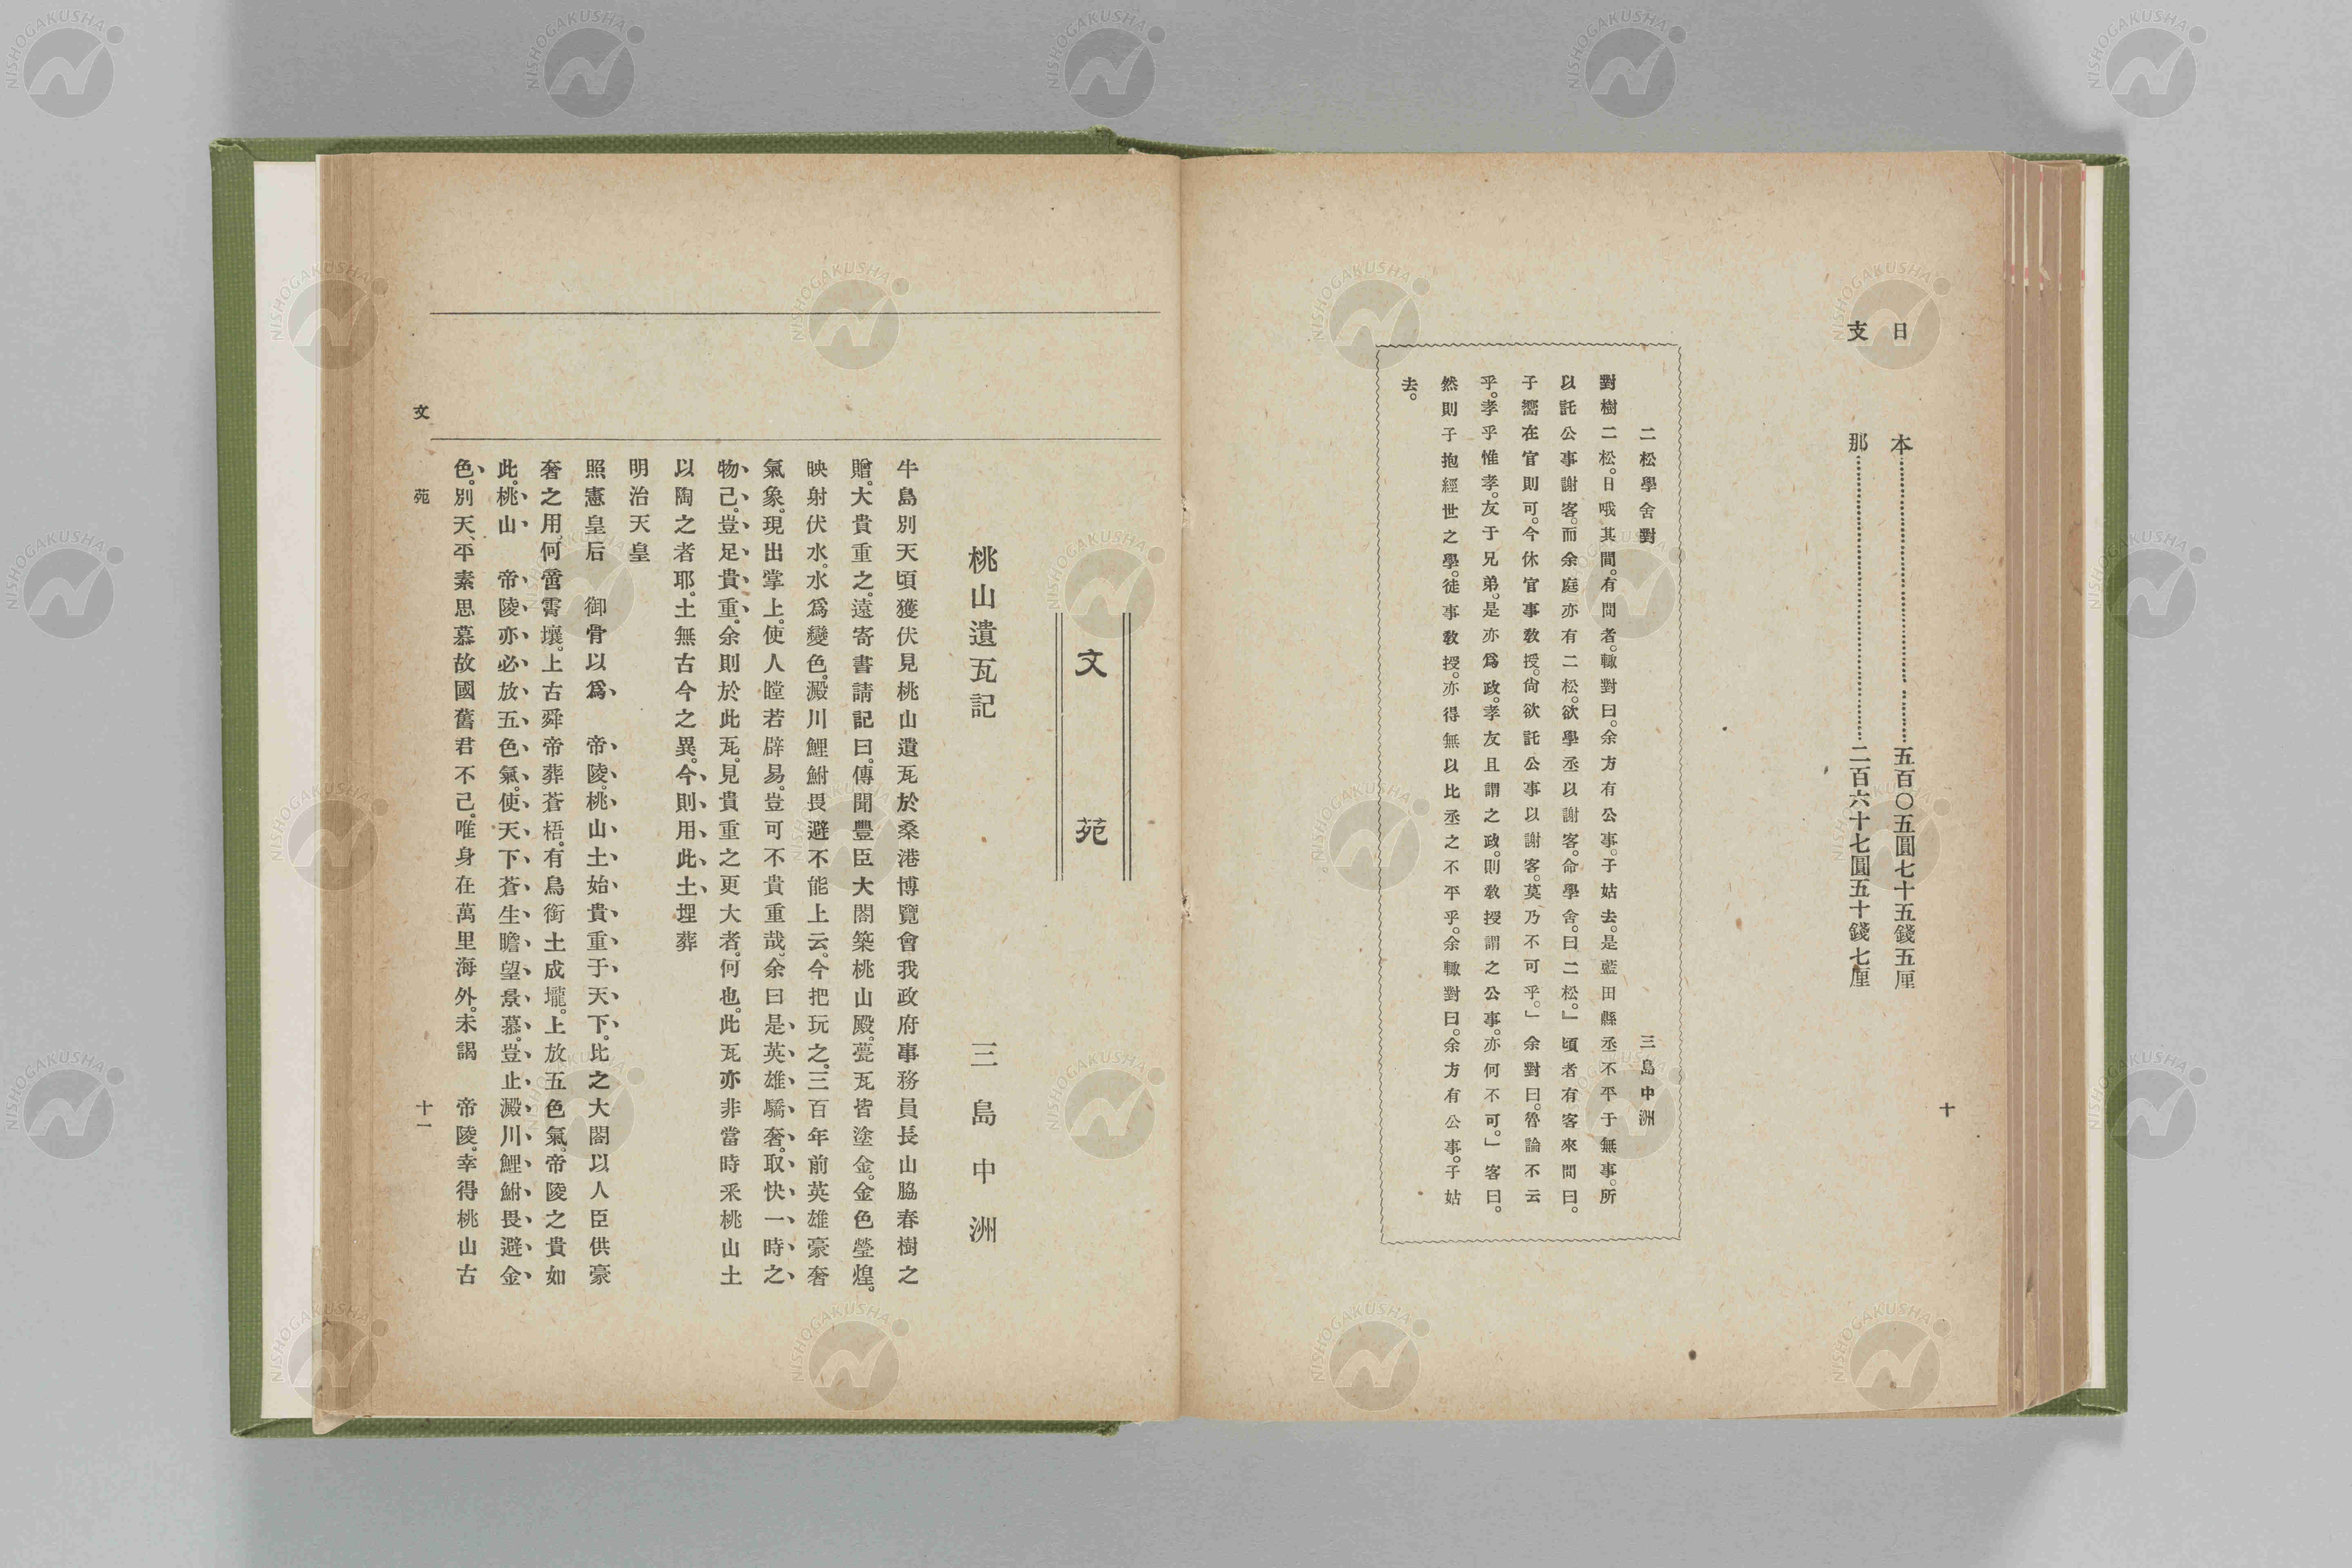 日本……………………………五百〇五圓七十五錢五厘
支那……………………………二百六十七圓五十錢七厘
十
二松學舍對　三島中洲
對樹二松。日哦其間。有問者。輙對曰。余方有公事。子姑去。是藍田縣丞不平于無事。所
以託公事謝客。而余庭亦有二松。欲學丞以謝客。命學舍。曰二松。」頃者有客來問曰。
子嚮在官則可。今休官事敎授。尙欲託公事以謝客。莫乃不可乎。」余對曰。魯論不云
乎。孝乎惟孝。友于兄弟。是亦爲政。孝友且謂之政。則敎授謂之公事。亦何不可。」客曰。
然則子抱經世之學。徒事敎授。亦得無以比丞之不平乎。余輙對曰。余方有公事。子姑
去。
文苑
桃山遺瓦記　三島中洲
牛島別天頃獲伏見桃山遺瓦於桑港博覽會我政府事務員長山脇春樹之
贈。大貴重之。遠寄書請記曰。傳聞豐臣大閤築桃山殿。甍瓦皆塗金。金色瑩煌。
映射伏水。水爲變色。澱川鯉鮒畏避不能上云。今把玩之。三百年前英雄豪奢
氣象。現出掌上。使人瞠若辟易。豈可不貴重哉。余曰是英雄驕奢。取快一時之
物已。豈足貴重。余則於此瓦。見貴重之更大者。何也。此瓦亦非當時釆桃山土
以陶之者耶。土無古今之異。今則用此土埋葬
明治天皇
照憲皇后　御骨以爲　帝陵。桃山土始貴重于天下。比之大閤以人臣供豪
奢之用。何啻霄壤。上古舜帝葬蒼梧。有鳥銜土成壠。上放五色氣。帝陵之貴如
此。桃山　帝陵亦必放五色氣。使天下蒼生瞻望景慕。豈止澱川鯉鮒畏避金
色。別天平素思慕故國舊君不已。唯身在萬里海外。未謁　帝陵。幸得桃山古
文苑　十一
NISHOGAKUSHA